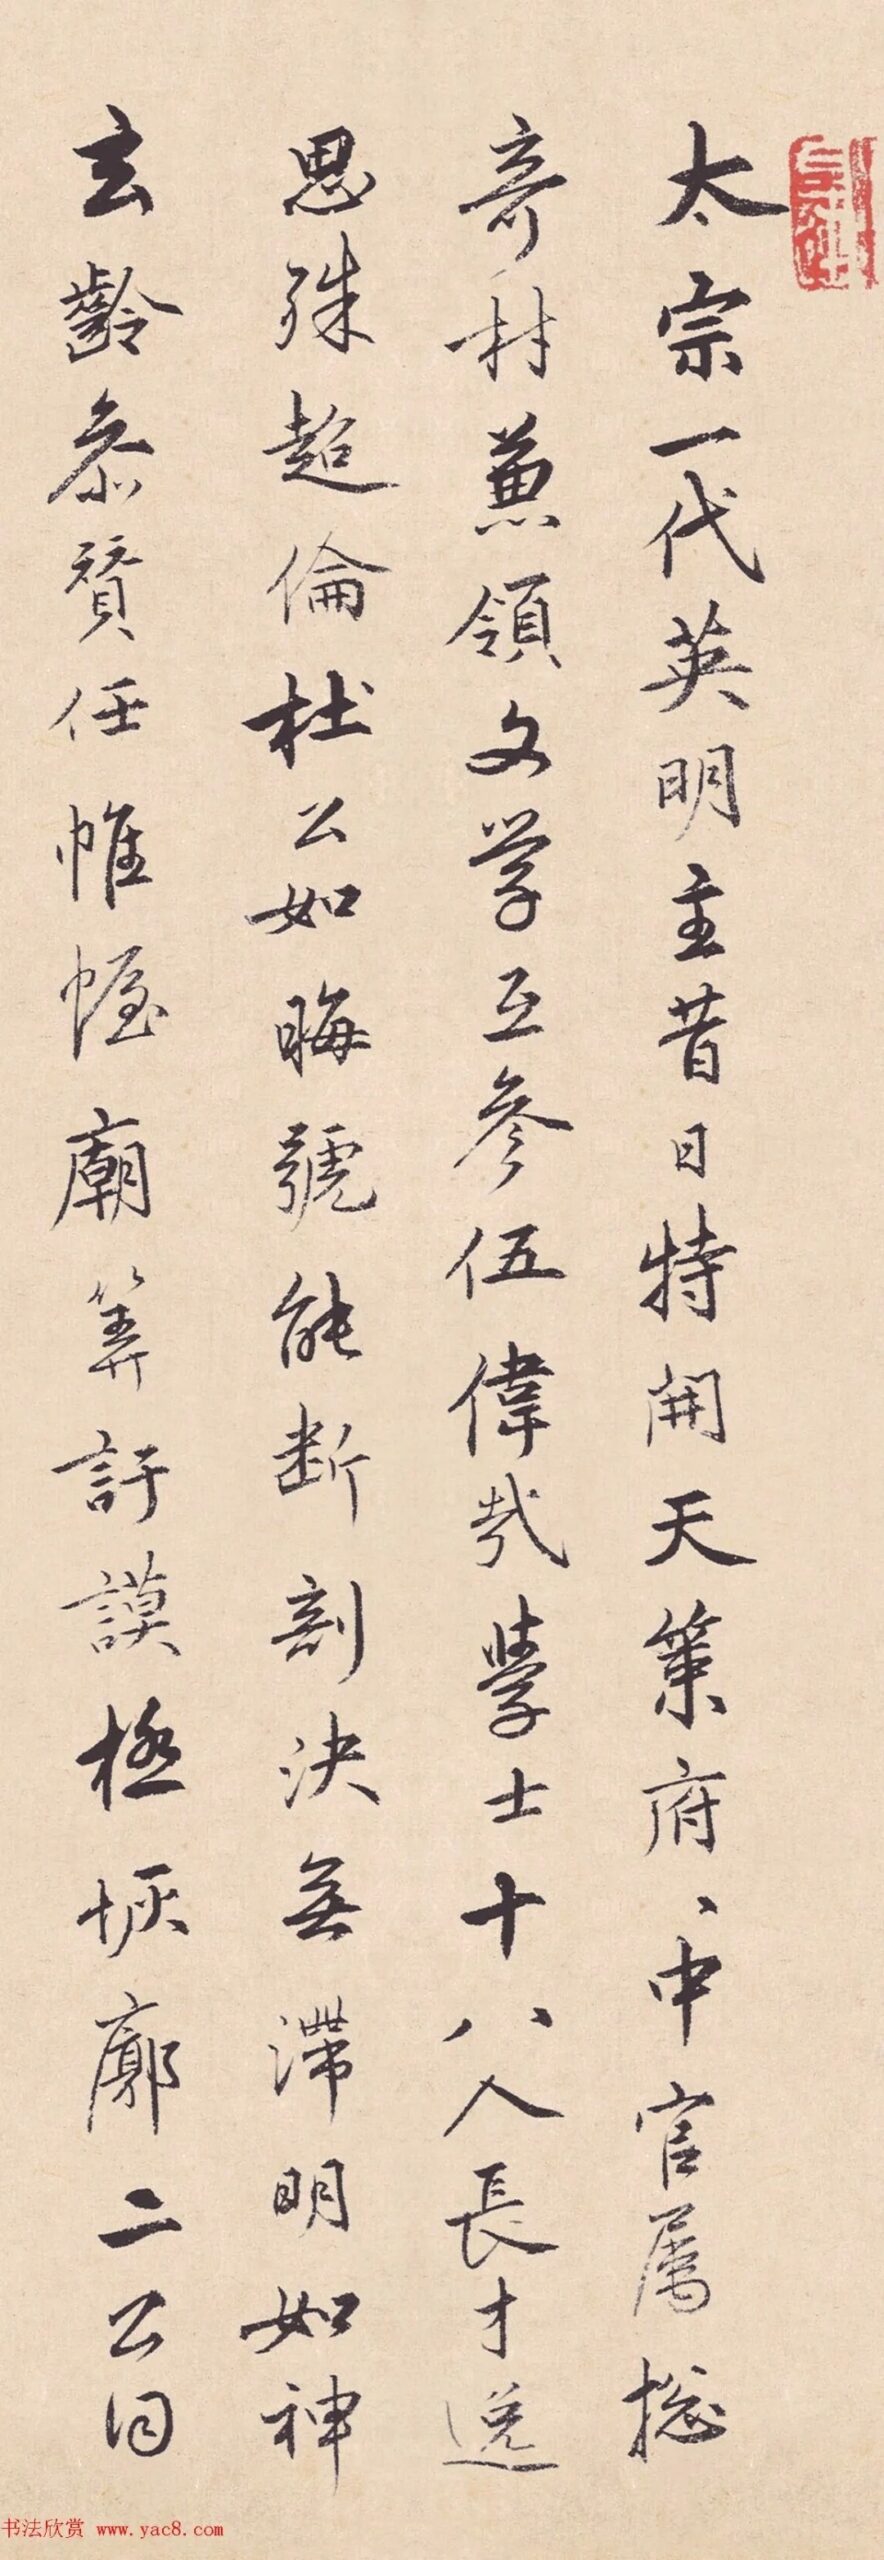 太宗一代英明主昔日特開天策府、中官属揔
奇材兼領文学互參伍偉哉學士十八人長才逸
思殊超倫杜公如晦號能断剖決無滯明如神
玄齡叅賛任帷幄廟筭訏謨極恢廓二公同
书法欣赏 www.yac8.com